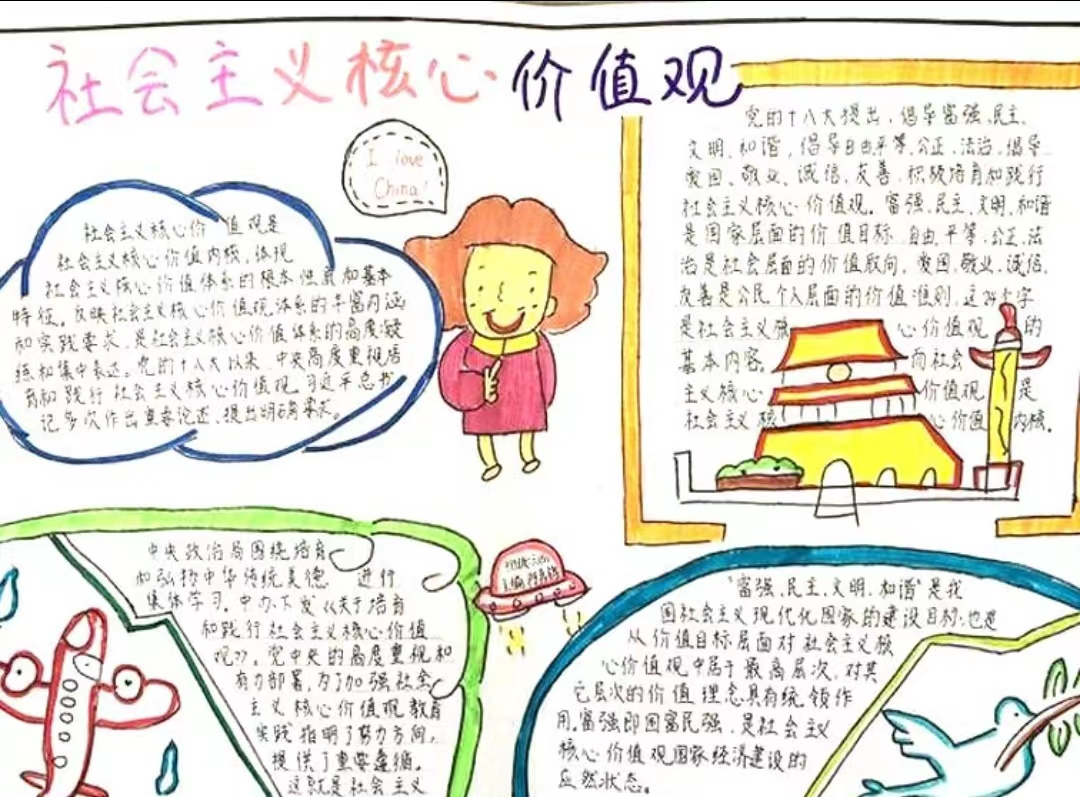 社会主义核心价值观
I love
China!
社会主义核心价值观是
社会主义核心价值内核,体现
社会主义核心价值体系的根本性质和基本
特征,反映社会主义核心价值观体系的丰富内涵
和实践要求,是社会主义核心价值体系的高度凝
练和集中表达。党的十八大以来,中央高度重视培
育和践行社会主义核心价值观。习近平总书
记多次作出重要论述、提出明确要求。
党的十八大提出,倡导富强、民主、
文明、和谐,倡导自由、平等、公正、法治,倡导
爱国、敬业、诚信、友善,积极培育和践行
社会主义核心价值观。富强、民主、文明、和谐
是国家层面的价值目标,自由、平等、公正、法
治是社会层面的价值取向,爱国、敬业、诚信、
友善是公民个人层面的价值准则,这24个字
是社会主义核心价值观的
基本内容。而社会
主义核心价值观是
社会主义核心价值内核。
中央政治局围绕培育
和弘扬中华传统美德 进行
集体学习。中办下发《关于培育
和践行社会主义核心价值
观》。党中央的高度重视和
有力部署,为了加强社会
主义核心价值观教育
实践指明了努力方向,
提供了重要遵循。
这就是社会主义
“富强、民主、文明、和谐”是我
国社会主义现代化国家的建设目标,也是
从价值目标层面对社会主义核
心价值观中属于最高层次,对其
它层次的价值理念具有统领作
用。富强即国富民强,是社会主义
核心价值观国家经济建设的
应然状态。